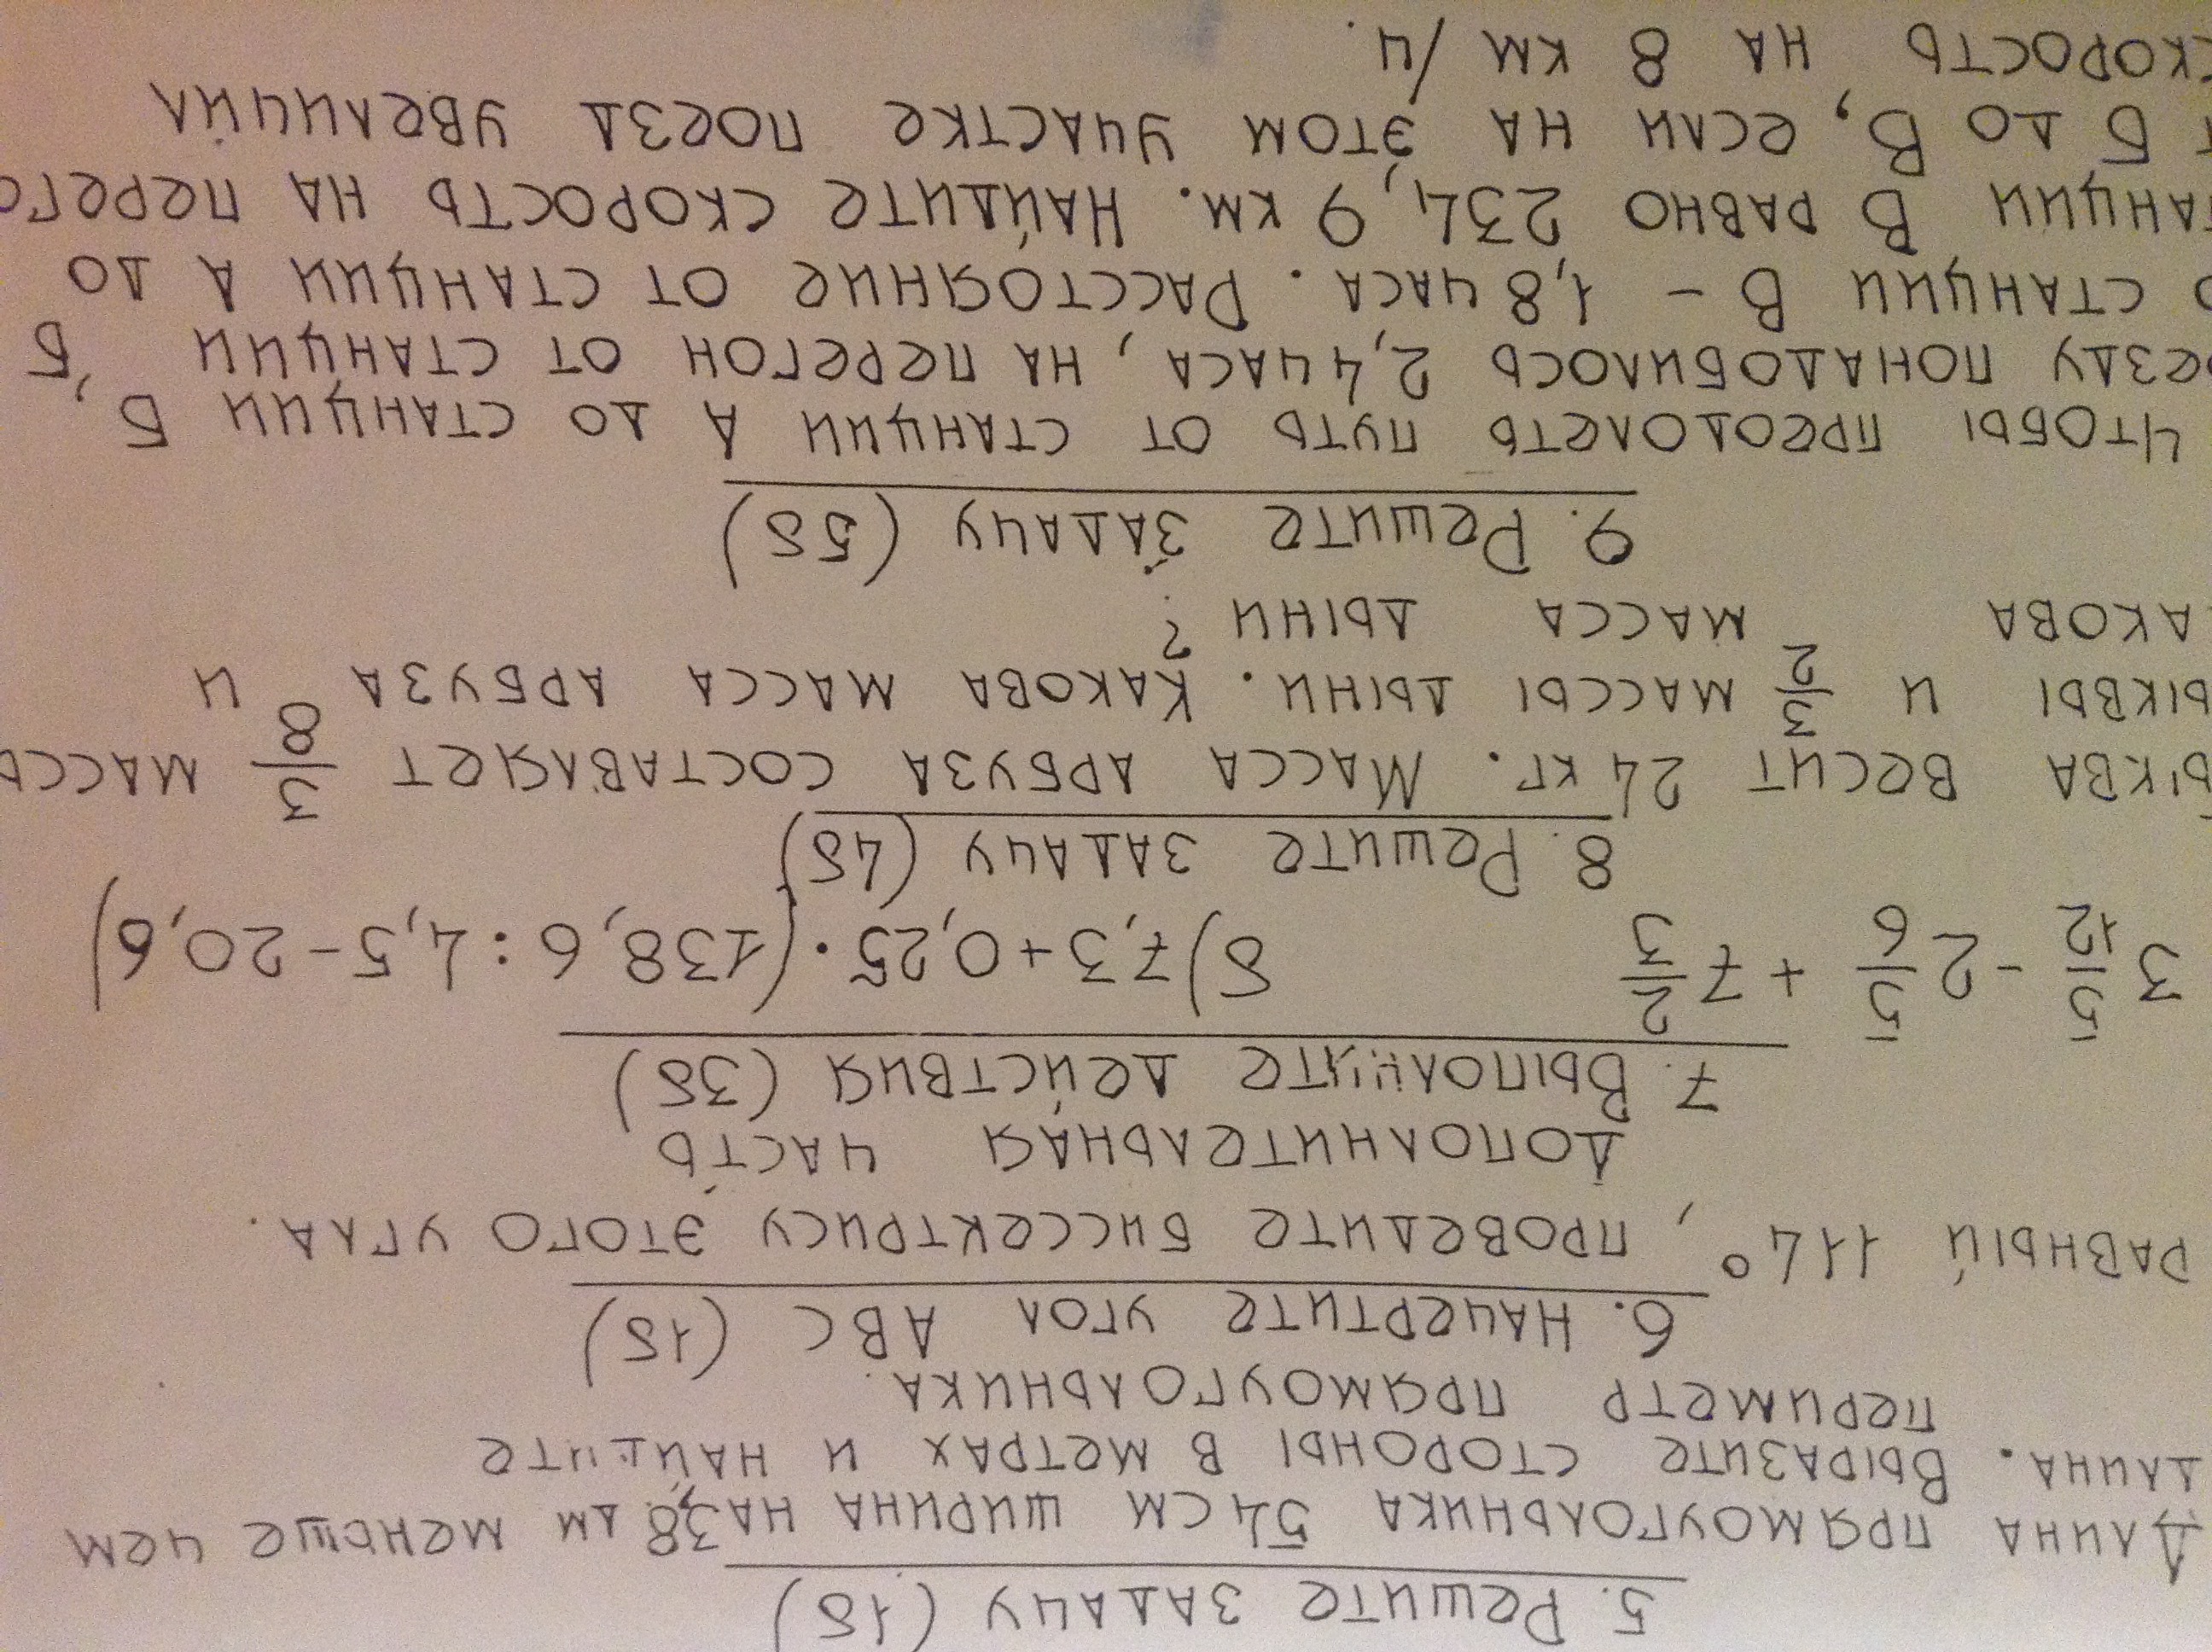 5. Решите задачу (1б)
Длина прямоугольника 54 см ширина на 3,8 дм меньше чем
длина. Выразите стороны в метрах и найдите
периметр прямоугольника.
6. Начертите угол АВС (1б)
равный 114°, проведите биссектрису этого угла.
Дополнительная часть
7. Выполните действия (3б)
3 5/12 - 2 5/6 + 7 2/3 б) 7,3+0,25·(138,6:4,5-20,6)
8. Решите задачу (4б)
ыква весит 24 кг. Масса арбуза составляет 3/8 массы
ыквы и 3/2 массы дыни. Какова масса арбуза и
акова масса дыни?
9. Решите задачу (5б)
Чтобы преодолеть путь от станции А до станции Б
оезду понадобилось 2,4 часа, на перегон от станции Б,
о станции В - 1,8 часа. Расстояние от станции А до
танции В равно 234,9 км. Найдите скорость на перего
т Б до В, если на этом участке поезд увеличил
скорость на 8 км/ч.